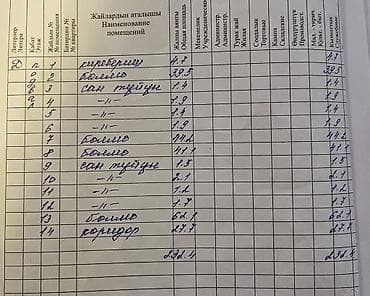 Литер Литера
Кабат Этаж
Жайдын № № помещения
Батирдин № № квартиры
Жайлардын аталышы Наименование помещений
Жалпы аянты Общая площадь
Турак жай Жилая
Соодалык Торговые
Кампа Складские
Өндүрүштүк Производст.
Көмөкчү Служебные
D п 1 киребериш 4.8 4.8
2 бөлмө 39.5 39.5
3 сан түйүн 1.4 1.4
4 -//- 1.9 1.9
5 -//- 1.4 1.4
6 -//- 1.9 1.9
7 бөлмө 44.2 44.2
8 бөлмө 41.1 41.1
9 сан түйүн 1.5 1.5
10 -//- 2.1 2.1
11 -//- 1.2 1.2
12 -//- 1.7 1.7
13 бөлмө 62.1 62.1
14 коридор 27.7 27.7
232.4 232.4